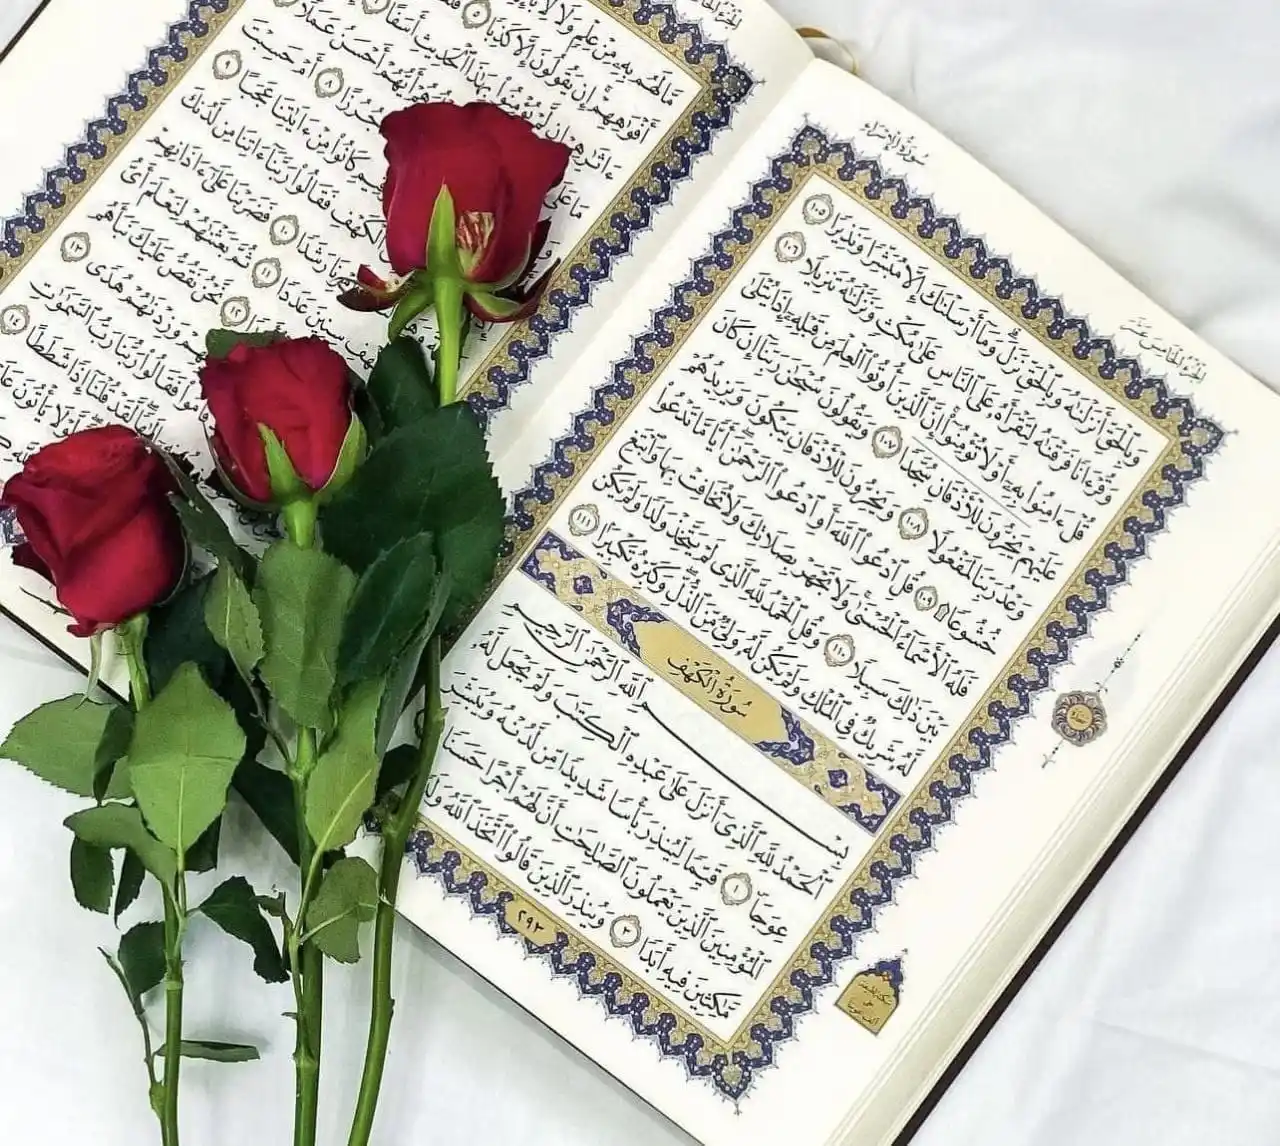 سُورَةُ الإِسْرَاءِ
الجُزْءُ الخَامِسَ عَشَرَ
وَبِٱلْحَقِّ أَنزَلْنَٰهُ وَبِٱلْحَقِّ نَزَلَۗ وَمَآ أَرْسَلْنَٰكَ إِلَّا مُبَشِّرًا وَنَذِيرًا ١٠٥
وَقُرْءَانًا فَرَقْنَٰهُ لِتَقْرَأَهُۥ عَلَى ٱلنَّاسِ عَلَىٰ مُكْثٍ وَنَزَّلْنَٰهُ تَنزِيلًا ١٠٦
قُلْ ءَامِنُوا۟ بِهِۦٓ أَوْ لَا تُؤْمِنُوٓا۟ۚ إِنَّ ٱلَّذِينَ أُوتُوا۟ ٱلْعِلْمَ مِن قَبْلِهِۦٓ إِذَا يُتْلَىٰ
عَلَيْهِمْ يَخِرُّونَ لِلْأَذْقَانِ سُجَّدًا ١٠٧ وَيَقُولُونَ سُبْحَٰنَ رَبِّنَآ إِن كَانَ
وَعْدُ رَبِّنَا لَمَفْعُولًا ١٠٨ وَيَخِرُّونَ لِلْأَذْقَانِ يَبْكُونَ وَيَزِيدُهُمْ
خُشُوعًا ۩ ١٠٩ قُلِ ٱدْعُوا۟ ٱللَّهَ أَوِ ٱدْعُوا۟ ٱلرَّحْمَٰنَۖ أَيًّا مَّا تَدْعُوا۟
فَلَهُ ٱلْأَسْمَآءُ ٱلْحُسْنَىٰۚ وَلَا تَجْهَرْ بِصَلَاتِكَ وَلَا تُخَافِتْ بِهَا وَٱبْتَغِ
بَيْنَ ذَٰلِكَ سَبِيلًا ١١٠ وَقُلِ ٱلْحَمْدُ لِلَّهِ ٱلَّذِى لَمْ يَتَّخِذْ وَلَدًا وَلَمْ يَكُن
لَّهُۥ شَرِيكٌ فِى ٱلْمُلْكِ وَلَمْ يَكُن لَّهُۥ وَلِىٌّ مِّنَ ٱلذُّلِّۖ وَكَبِّرْهُ تَكْبِيرًۢا ١١١
سُورَةُ الكَهْفِ
بِسْمِ ٱللَّهِ ٱلرَّحْمَٰنِ ٱلرَّحِيمِ
ٱلْحَمْدُ لِلَّهِ ٱلَّذِىٓ أَنزَلَ عَلَىٰ عَبْدِهِ ٱلْكِتَٰبَ وَلَمْ يَجْعَل لَّهُۥ
عِوَجَاۜ ١ قَيِّمًا لِّيُنذِرَ بَأْسًا شَدِيدًا مِّن لَّدُنْهُ وَيُبَشِّرَ
ٱلْمُؤْمِنِينَ ٱلَّذِينَ يَعْمَلُونَ ٱلصَّٰلِحَٰتِ أَنَّ لَهُمْ أَجْرًا حَسَنًا
مَّٰكِثِينَ فِيهِ أَبَدًا ٣ وَيُنذِرَ ٱلَّذِينَ قَالُوا۟ ٱتَّخَذَ ٱللَّهُ
٢٩٣
سجدة
مَّا لَهُم بِهِۦ مِنْ عِلْمٍ وَلَا
أَفْوَٰهِهِمْۚ إِن يَقُولُونَ إِلَّا كَذِبًا ٥
ءَاثَٰرِهِمْ إِن لَّمْ يُؤْمِنُوا۟ بِهَٰذَا ٱلْحَدِيثِ أَسَفًا
مَا عَلَى أَيُّهُمْ أَحْسَنُ عَمَلًا
جُرُزًا ٨ أَمْ حَسِبْتَ
كَانُوا۟ مِنْ ءَايَٰتِنَا عَجَبًا ٩
ٱلْكَهْفِ فَقَالُوا۟ رَبَّنَآ ءَاتِنَا مِن لَّدُنكَ
رَشَدًا ١٠ فَضَرَبْنَا عَلَىٰٓ ءَاذَانِهِمْ
سِنِينَ عَدَدًا ١١ ثُمَّ بَعَثْنَٰهُمْ لِنَعْلَمَ أَىُّ
١٢ نَّحْنُ نَقُصُّ عَلَيْكَ نَبَأَهُم
وَزِدْنَٰهُمْ هُدًى ١٣
فَقَالُوا۟ رَبُّنَا رَبُّ ٱلسَّمَٰوَٰتِ
لَّقَدْ قُلْنَآ إِذًا شَطَطًا ١٤